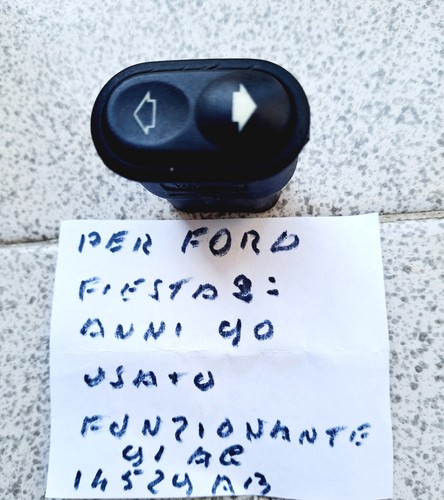 PER FORD
FIESTA 2:
ANNI 90
USATO
FUNZIONANTE
91 AG
14529 AB